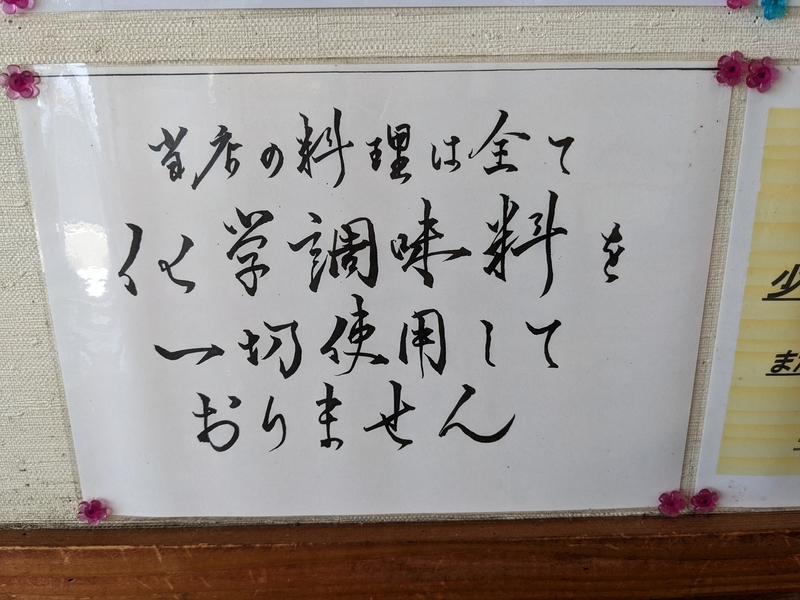 当店の料理は全て
化学調味料を
一切使用して
おりません
少
また